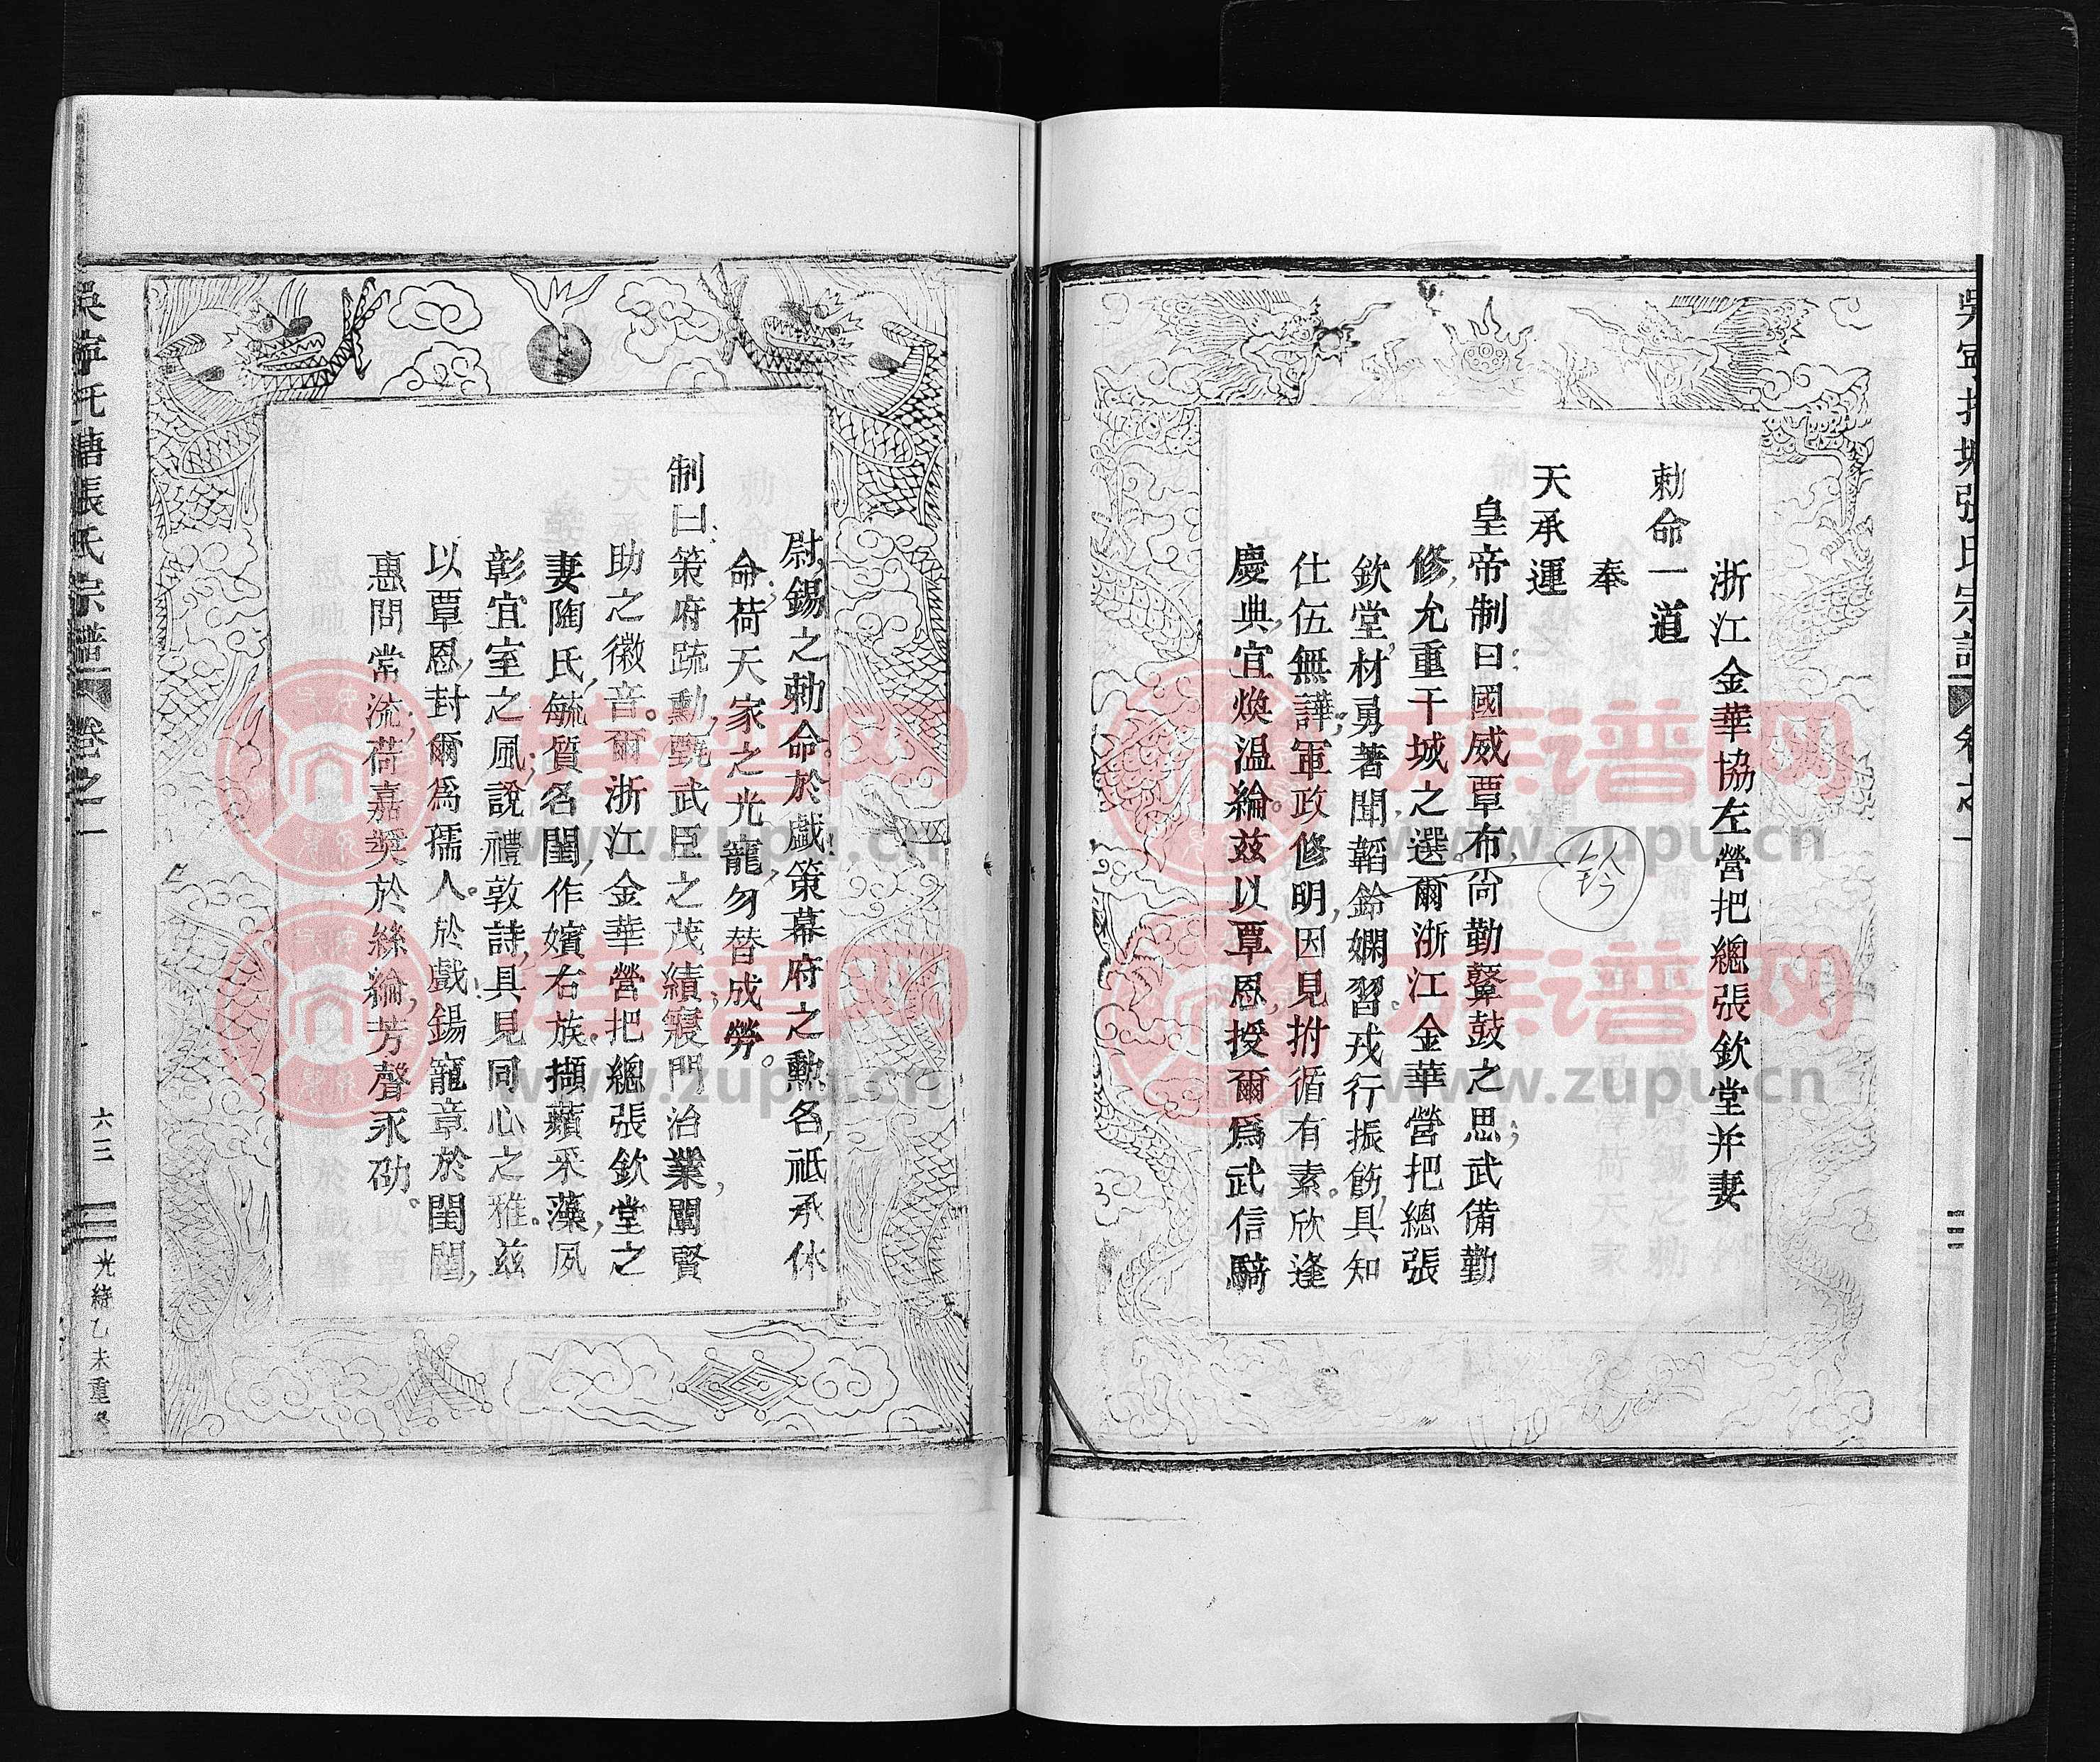 浙江金華協左營把總張欽堂并妻
勅命一道
奉
天承運
皇帝制曰國威覃布尚勤鼙鼓之思武備勤
修允重干城之選爾浙江金華營把總張
欽堂材勇著聞韜鈴嫻習戎行振飭具知
仕伍無譁軍政修明因見拊循有素欣逢
慶典宜煥温綸兹以覃恩授爾爲武信騎
鈐
尉錫之勅命於戲策幕府之勳名祗承休
命荷天家之光龍勿替成勞
制曰策府疏勳甄武臣之茂績寢門治業闡賢
助之徽音爾浙江金華營把總張欽堂之
妻陶氏毓質名閨作嬪右族擷蘋采藻夙
彰宜室之風說禮敦詩具見同心之雅兹
以覃恩封爾爲孺人於戲錫寵章於閨閫
惠問常流荷嘉奖於絲綸芳聲永劭
吳寧托塘張氏宗譜 卷之一
六三
光緒乙未重修
吳寧托塘張氏宗譜 卷之一
族谱网
www.zupu.cn
族谱网
www.zupu.cn
族谱网
www.zupu.cn
族谱网
www.zupu.cn